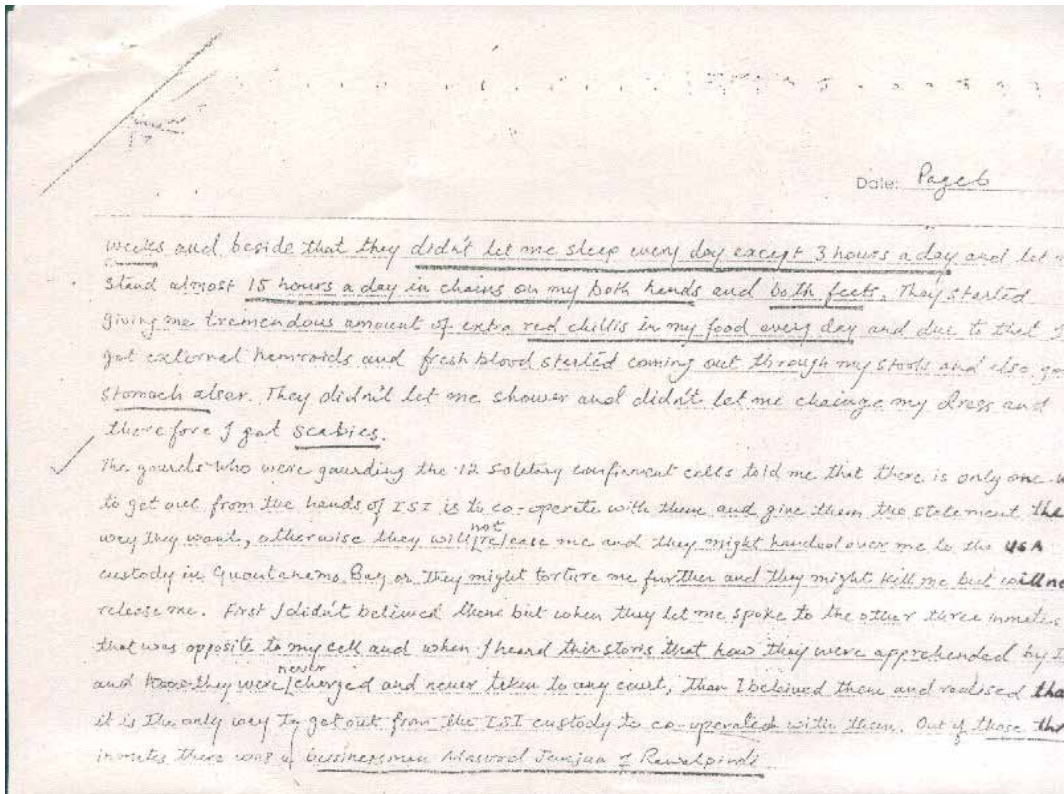 Date: Page 6
weeks and beside that they didn't let me sleep every day except 3 hours a day and let
stand almost 15 hours a day in chains on my both hands and both feets. They started
giving me tremendous amount of extra red chillis in my food every day and due to that I
got external hemroids and fresh blood started coming out through my stools and also go
stomach alser. They didn't let me shower and didn't let me chainge my dress and
therefore I got scabies.
The gaurds who were gaurding the 12 soletary confirment cells told me that there is only one
to get out from the hands of ISI is to co-operate with them and give them the statement the
way they want, otherwise they will not release me and they might handed over me to the USA
custody in Guantanemo Bay or they might torture me further and they might kill me but will no
release me. First I didn't belived them but when they let me spoke to the other three inmates
that was opposite to my cell and when I heard thir storis that how they were apprehended by I
and they were never charged and never taken to any court, than I belived them and realised tha
it is the only way to get out from the ISI custody to co-operated with them. Out of those thr
inmates there was a businessman Masood Janjua of Rawalpindi